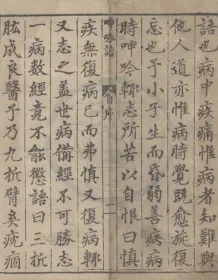 語也病中疾痛惟病者知難與
他人道亦惟病時覺既愈旋復
忘也予小子生而昏弱善病病
時呻吟輒志所苦以自恨曰慎
呻吟語 自序
疾無復病已而弗慎又復病輒
又志之蓋世病備經不可勝志
一病數經竟不能懲語曰三折
肱成良醫予乃九折臂矣疣痼